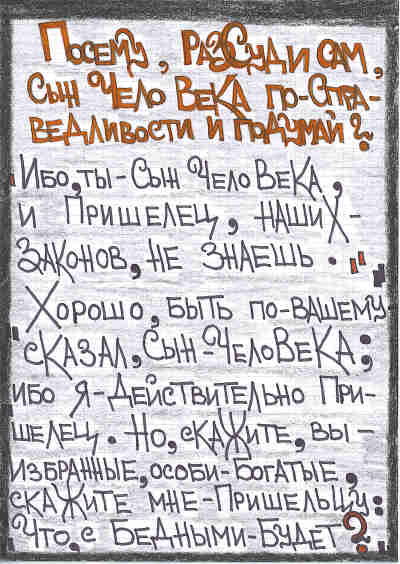 Посему, разСуди сам,
Сын ЧЕло ВеКА по-Спра-
ведливости и подумай?
Ибо, ты-Сын Чело ВеКА,
и Пришелец, наших-
Законов, не знаешь.
Хорошо, быть по-вашему-
сказал, Сын-ЧелоВеКА;
ибо я-Действительно При-
шелец. Но, скажите, вы-
избранные, особи-Богатые,
скажите мне-Пришельцу:
Что, с Бедными-Будет?